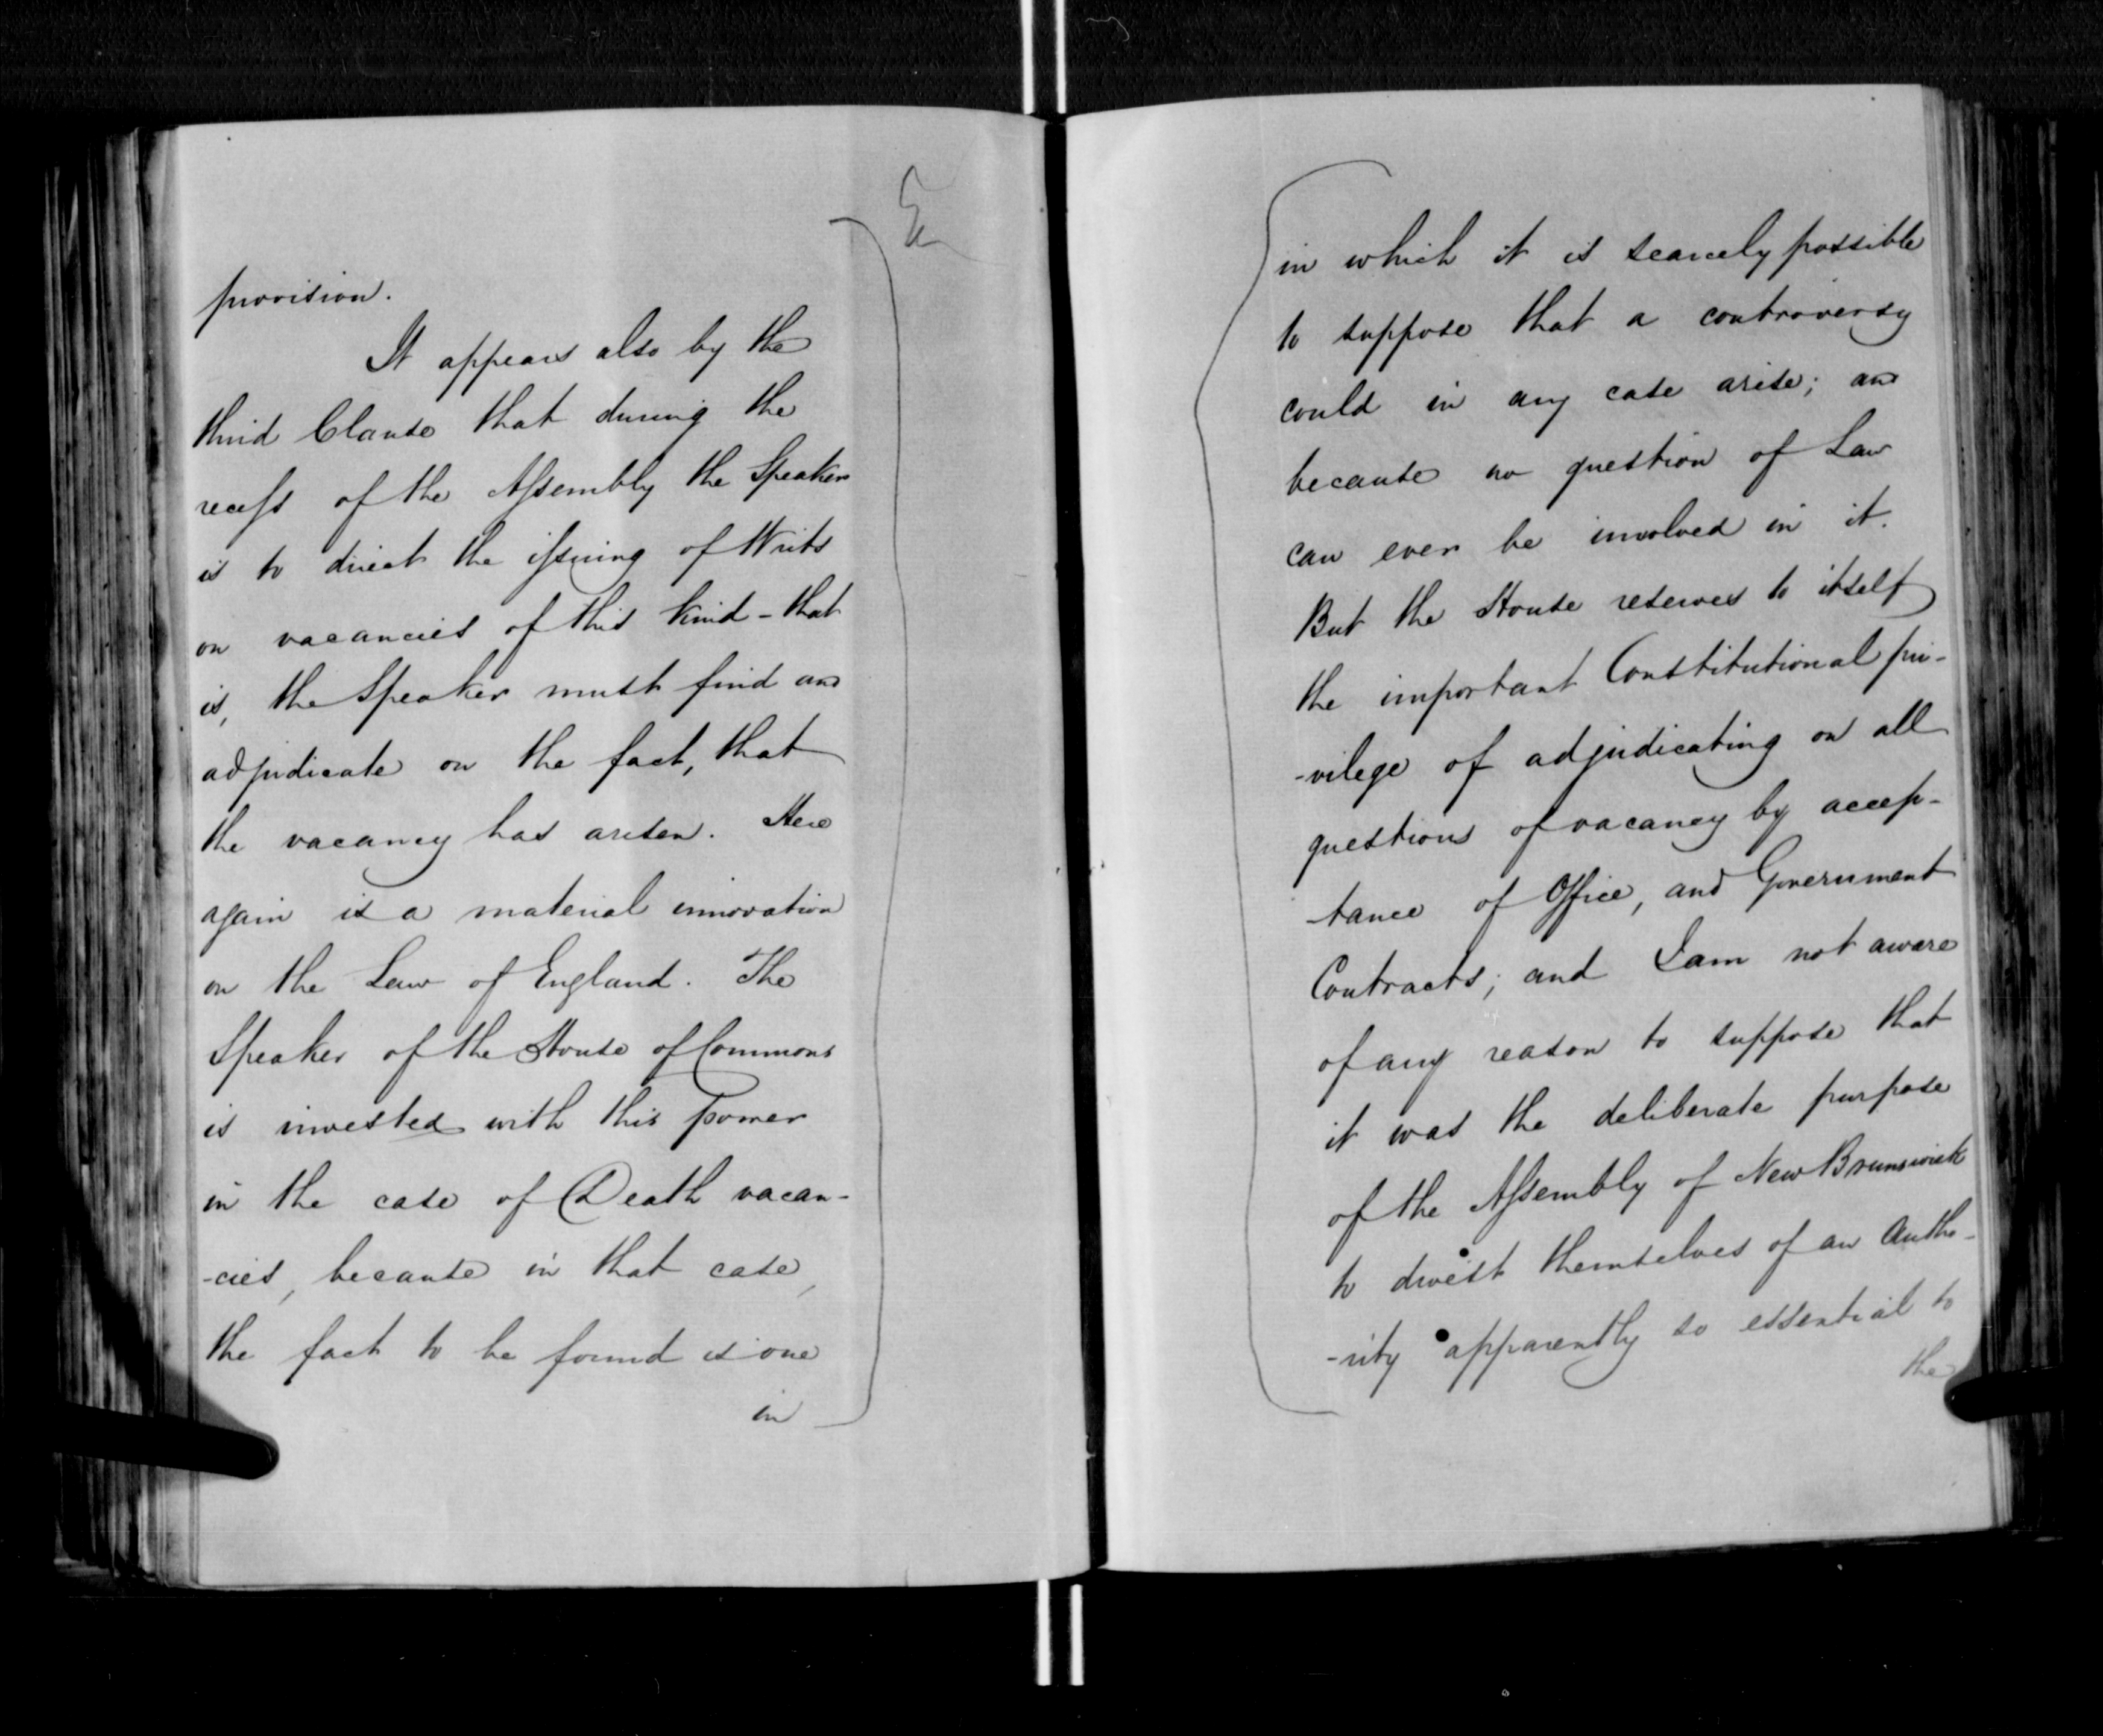 provision.
It appears also by the
third Clause that during the
recess of the Assembly the Speaker
is to direct the issuing of Writs
on vacancies of this kind - that
is, the Speaker must find and
adjudicate on the fact, that
the vacancy has arisen. Here
again is a material innovation
on the Law of England. The
Speaker of the House of Commons
is invested with this power
in the case of Death vacan-
-cies, because in that case,
the fact to be found is one
in
in which it is scarcely possible
to suppose that a controversy
could in any case arise; and
because no question of Law
can ever be involved in it.
But the House reserves to itself
the important Constitutional pri-
-vilege of adjudicating on all
questions of vacancy by accep-
-tance of Office, and Government
Contracts; and I am not aware
of any reason to suppose that
it was the deliberate purpose
of the Assembly of New Brunswick
to divest themselves of an Autho-
-rity apparently so essential to
the